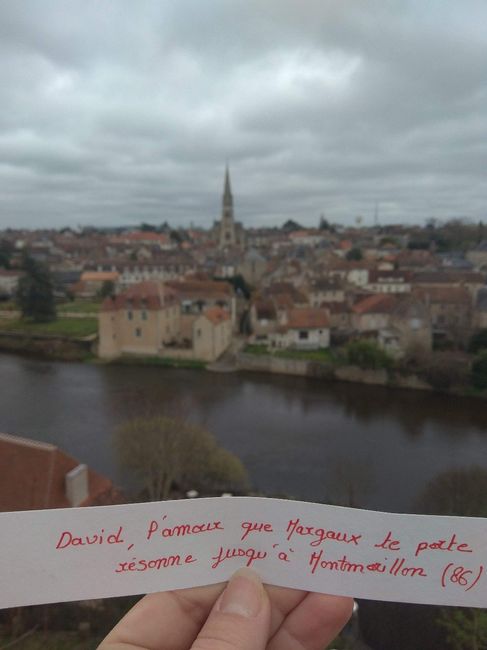 David, l'amour que Margaux te porte
résonne jusqu'à Montmorillon (86)